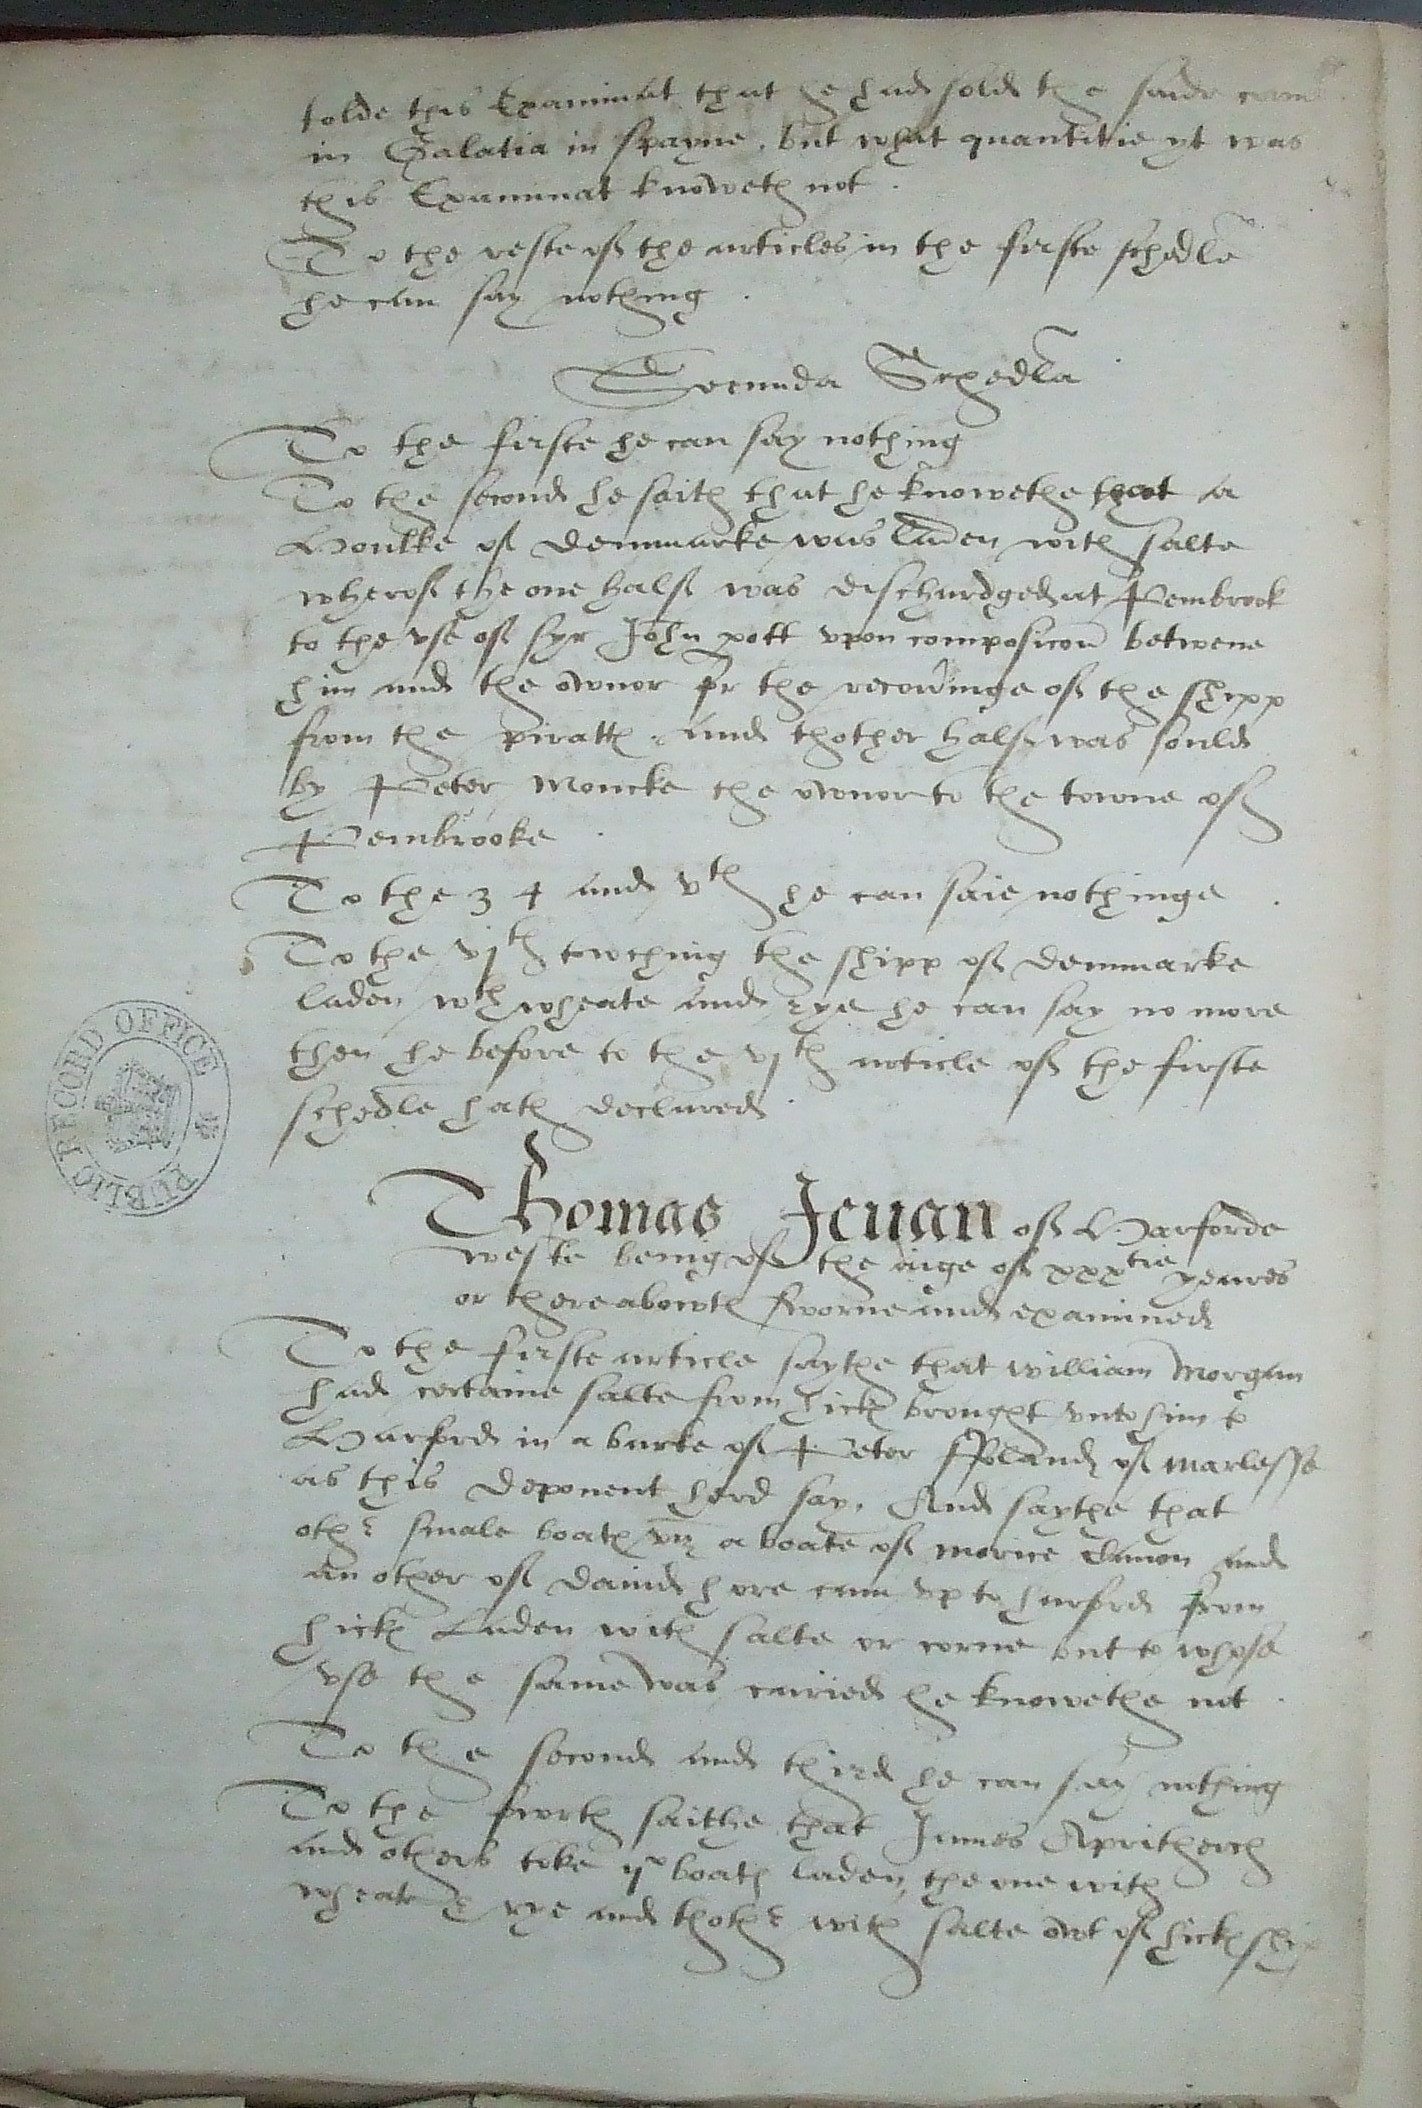 tolde this Examinat that he had solde the saide corne
in Galatia in Spayne, but what quantitie yt was
this Examinat knoweth not.
To the reste of the articles in the firste schedla
he can say nothing.
Secunda Schedla
To the firste he can say nothing
To the second he saith that he knowethe that a
Houlke of denmarke was laden with salte
wherof the one half was dischardged at Pembrook
to the vse of syr John pott vpon composicon betwene
him and the ownor for the recoveringe of the shipp
from the piratts, and thother half was sould
by Peter Moncke the ownor to the towne of
Pembrooke.
To the 3 4 and vth he can saie nothinge.
To the vjth towching the shipp of denmarke
laden wth wheate and rye he can say no more
then he before to the vjth article of the firste
schedle hath declared.
Thomas Jeuan of Harforde
weste being of the aige of xxxtie yeares
or thereabowts sworne and examined
To the firste article saythe that william Morgan
had certaine salte from hicks brought vnto him to
Harford in a barke of Peter ffoland of marlesse
as this deponent herd say. And saythe that
other smale boats viz a boate of morice Canon and
an other of dauid hore cam vp to harford from
hicks Laden with salte or corne but to whose
vse the same was caried he knowethe not.
To the second and third he can say nothing
To the fowrth saithe that James Apritherch
and others toke ij boats laden, the one with
wheate & rye and thother with salte owt of hicks ship
PUBLIC RECORD OFFICE